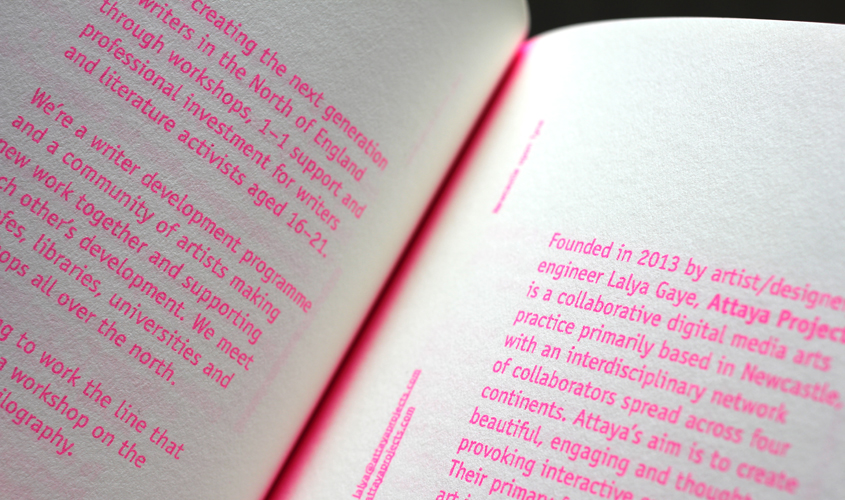 creating the next generation
writers in the North of England
through workshops, 1–1 support and
professional investment for writers
and literature activists aged 16–21.
We're a writer development programme
and a community of artists making
new work together and supporting
other's development. We meet
libraries, universities and
all over the north.
to work the line that
a workshop on the
Newcastle upon Tyne
Founded in 2013 by artist/designer
engineer Lalya Gaye, Attaya Project
is a collaborative digital media arts
practice primarily based in Newcastle,
with an interdisciplinary network
of collaborators spread across four
continents. Attaya's aim is to create
beautiful, engaging and thought
provoking interactive
Their primary
lalya@attayaprojects.com
attayaprojects.com